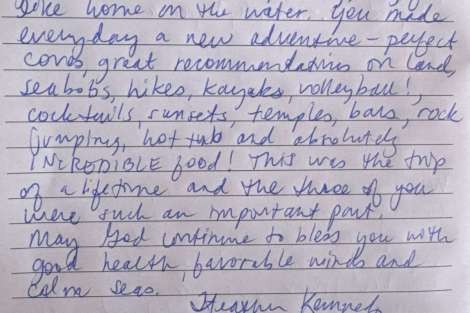 like home on the water. You made
everyday a new adventure - perfect
coves, great recommendations on land,
seabobs, hikes, kayaks, volleyball!,
cocktails, sunsets, temples, bars, rock
jumping, hot tub and absolutely
INCREDIBLE food! This was the trip
of a lifetime and the three of you
were such an important part.
May God continue to bless you with
good health, favorable winds and
calm seas.
Heather